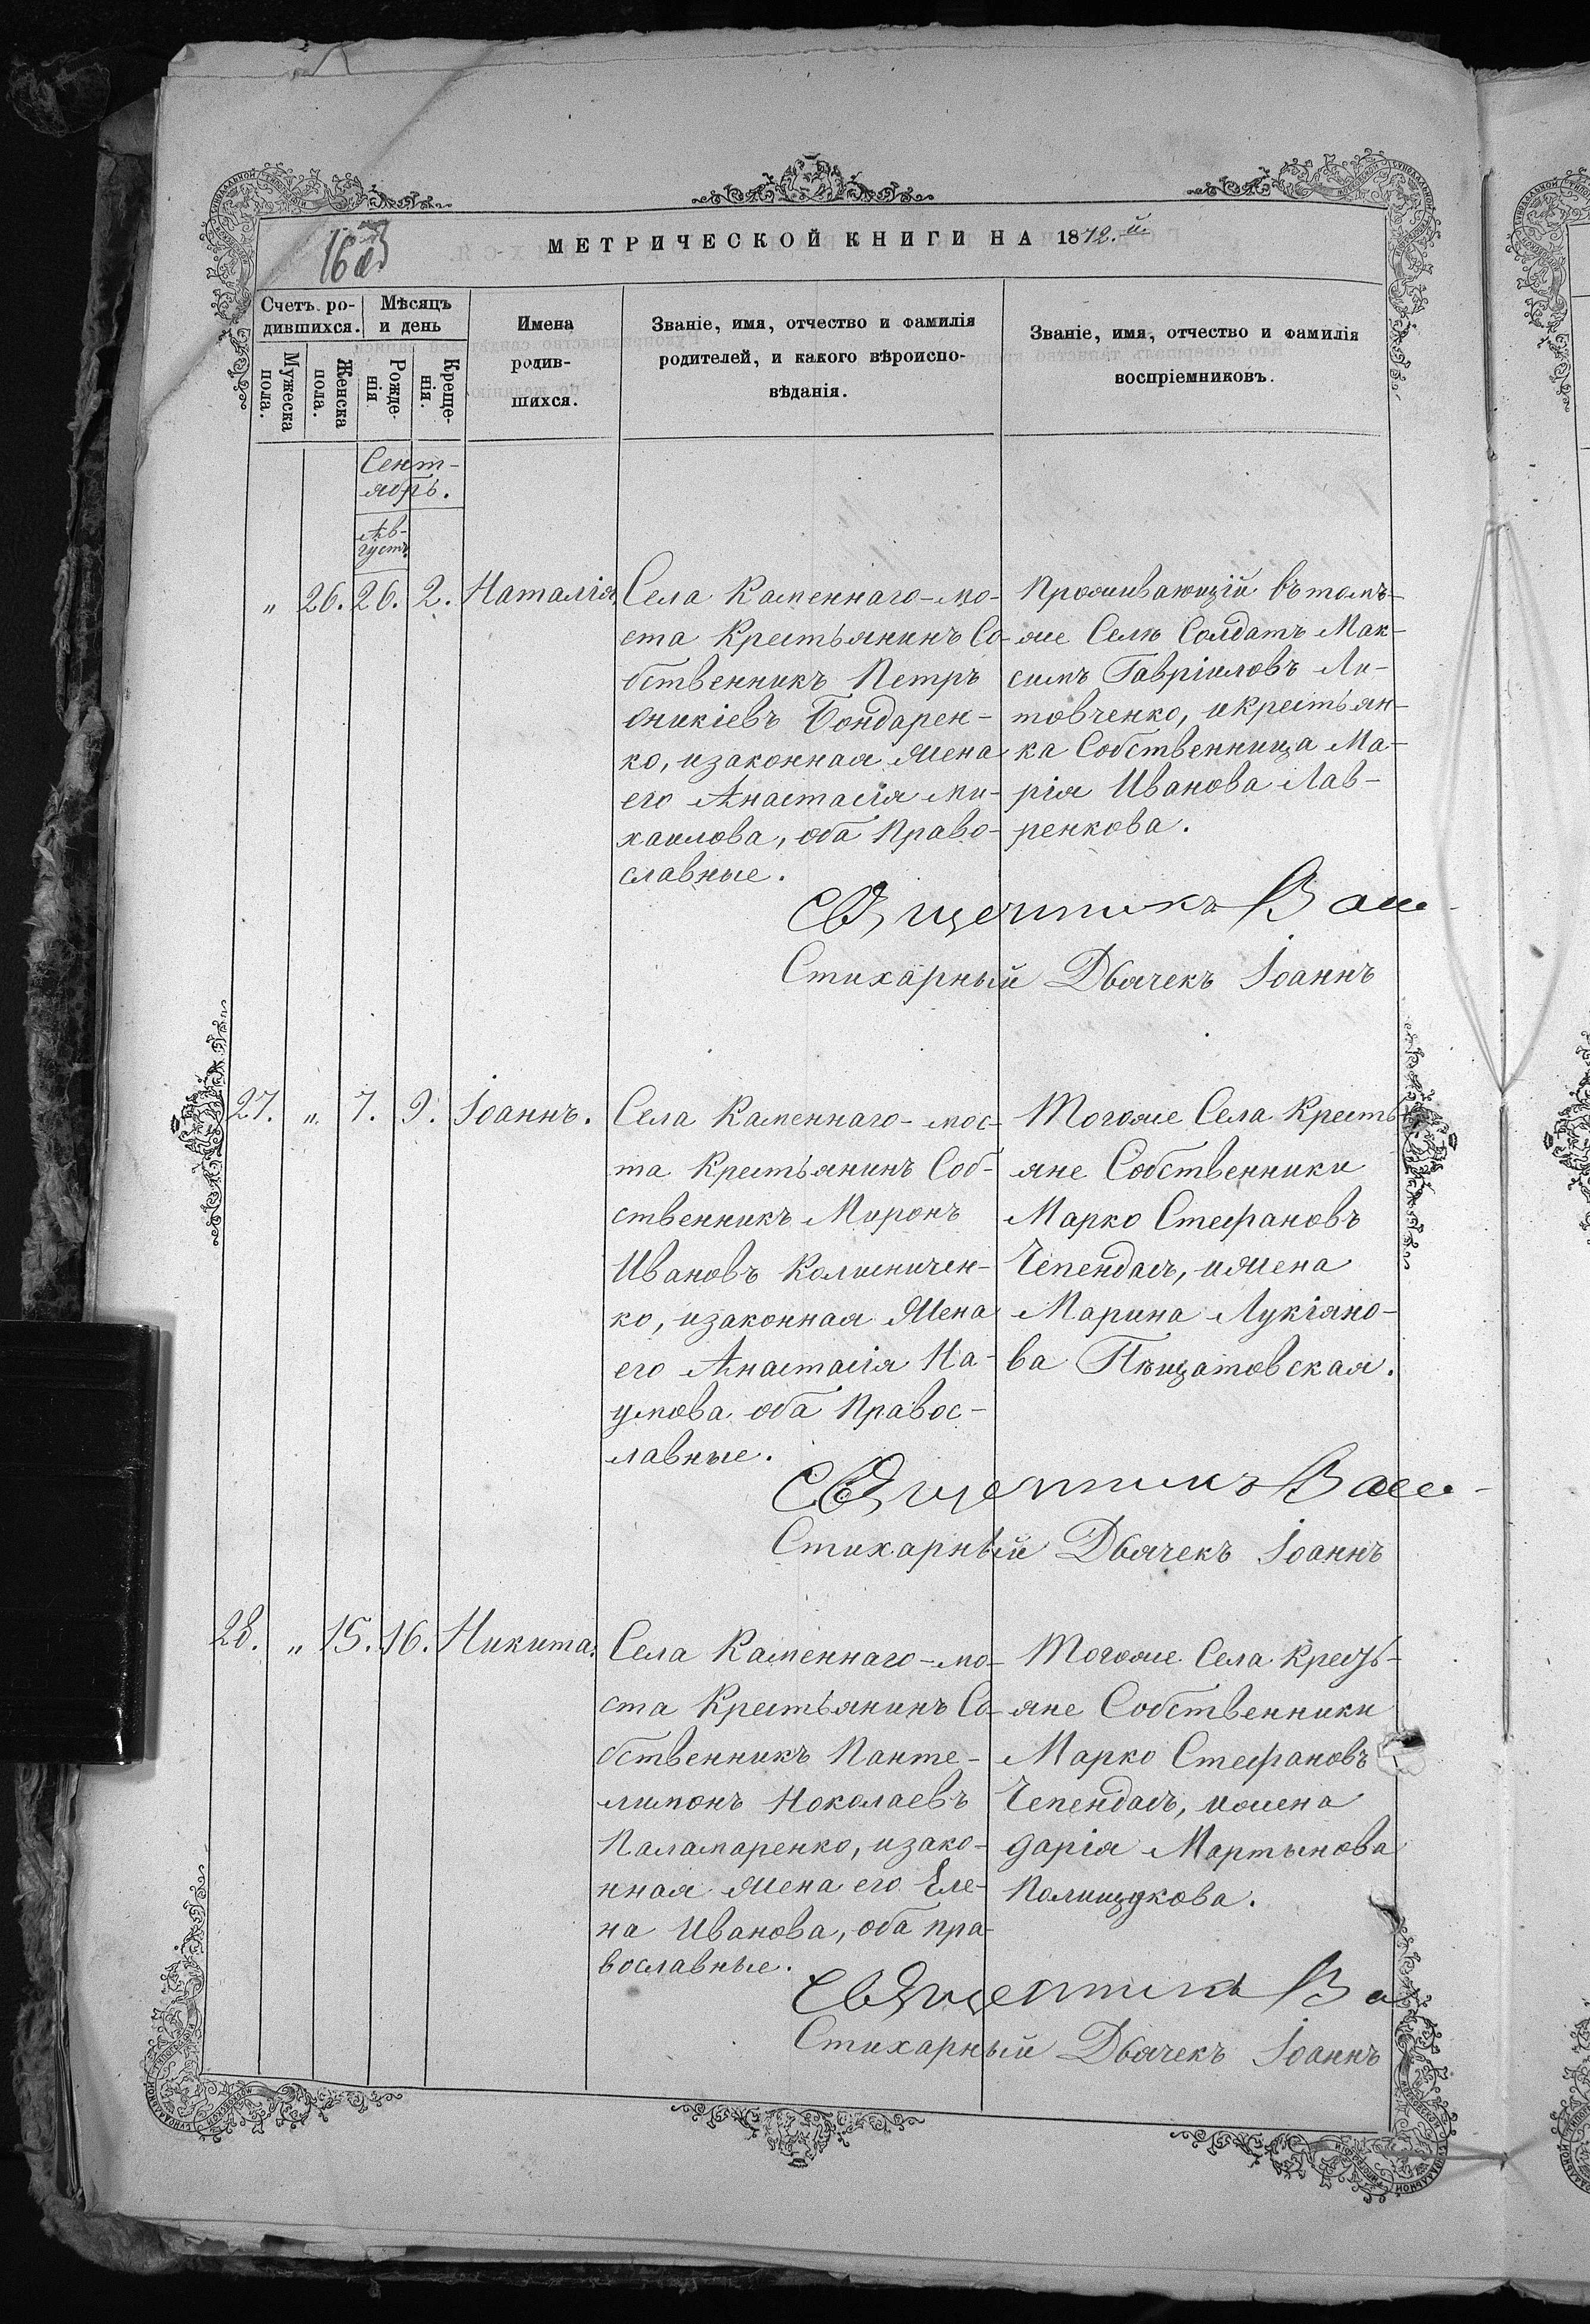 МЕТРИЧЕСКОЙ КНИГИ НА 1872.й
Счетъ ро-
дившихся.
Мѣсяцъ
и день
Мужеска
пола.
Женска
пола.
Рожде-
нія
Креще-
нія.
Имена
родив-
шихся.
Званіе, имя, отчество и фамилія
родителей, и какого вѣроиспо-
вѣданія.
Званіе, имя, отчество и фамилія
воспріемниковъ.
Сент-
ябрь.
Ав-
густъ
„ 26. 26. 2. Наталія.
Села Каменнаго-мо-
ста Крестьянинъ Со-
бственникъ Петръ
Оникіевъ Бондарен-
ко, изаконная жена
его Анастасія Ми-
хаилова, оба Право-
славные.
Проживающій въ томъ-
же Селѣ Солдатъ Мак-
симъ Гавріиловъ Ли-
товченко, икрестьян-
ка Собственница Ма-
рія Иванова Лав-
ренкова.
Священникъ Вам-
Стихарный Дьячекъ Іоаннъ
27. „ 7. 9. Іоаннъ.
Села Каменнаго-мос-
та Крестьянинъ Соб-
ственникъ Миронъ
Ивановъ Калиничен-
ко, изаконная Жена
его Анастасія На-
умова оба Правос-
лавные.
Тогоже Села Кресть
яне Собственники
Марко Стефановъ
Чепендаль, ижена
Марина Лукіяно-
ва
Священникъ
Стихарный Дьячекъ Іоаннъ
28. „ 15. 16. Никита.
Села Каменнаго-мо-
ста Крестьянинъ Со-
бственникъ Панте-
лимонъ Николаевъ
Паламаренко, изако-
нная жена его Еле-
на Иванова, оба пра-
вославные.
Тогоже Села Кресть-
яне Собственники
Марко Стефановъ
Чепендаль, ижена
Дарія Мартынова
Полищукова.
Священникъ Ва
Стихарный Дьячекъ Іоаннъ